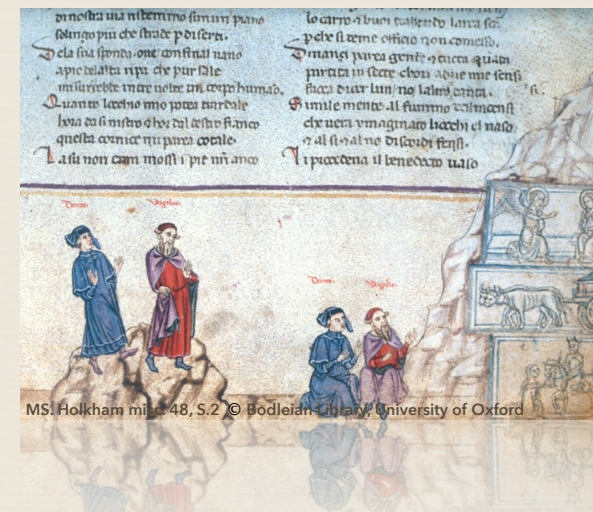 di nostra uia ristemmo sim un piano
solingo piu che strade p diserti.
Dela sua sponda oue confinal uano
a pie delalta ripa che pur sale
misurrebbe intre uolte un corpo humano.
Quanto locchio mio potea
hora da si nistro hor dal destro fianco
questa cornice mi parea cotale.
Lasu non eram mossi i pie nr̄i anco
lo carro e buoi trahendo larca
p che si teme officio non
Dinanci parea gente e tucta quanta
partita in sette chori adue mie sensi
facea dicer lun no laltro canta.
si.
Simile mente al fummo delincensi
che uera ymaginato liocchi el naso
e al si e al no discordi fensi.
Li precedeua il benedecto uaso
MS. Holkham misc. 48, S.2 © Bodleian Library, University of Oxford